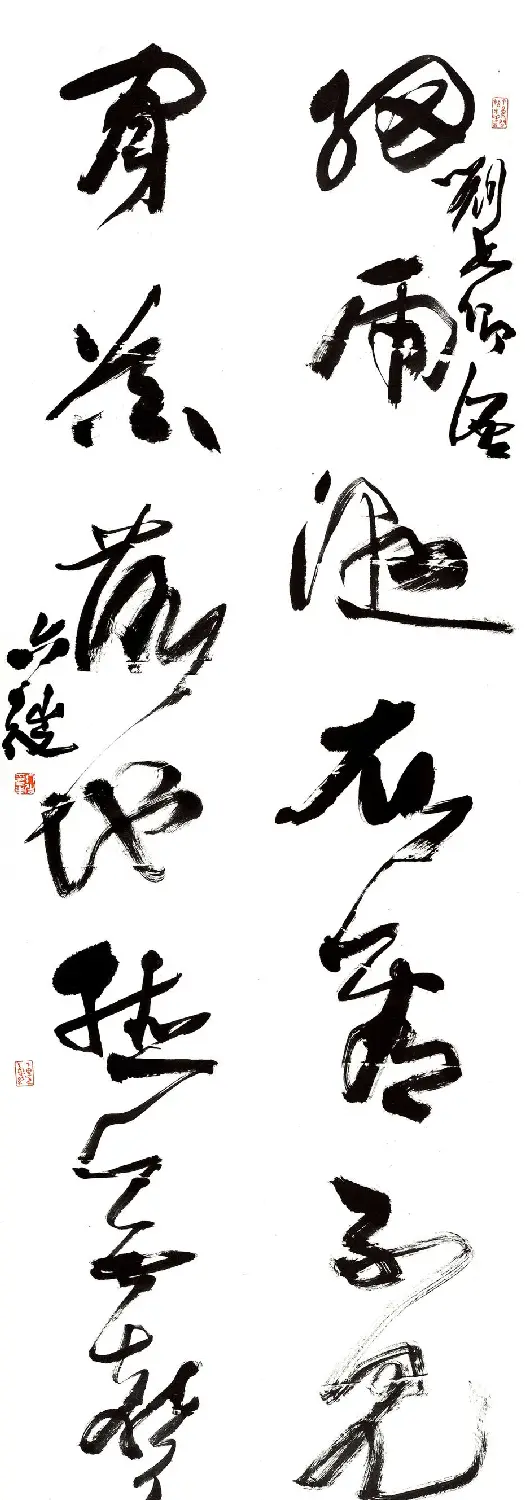 細雨濕衣看不見
劉長卿
閒花落地聽無聲